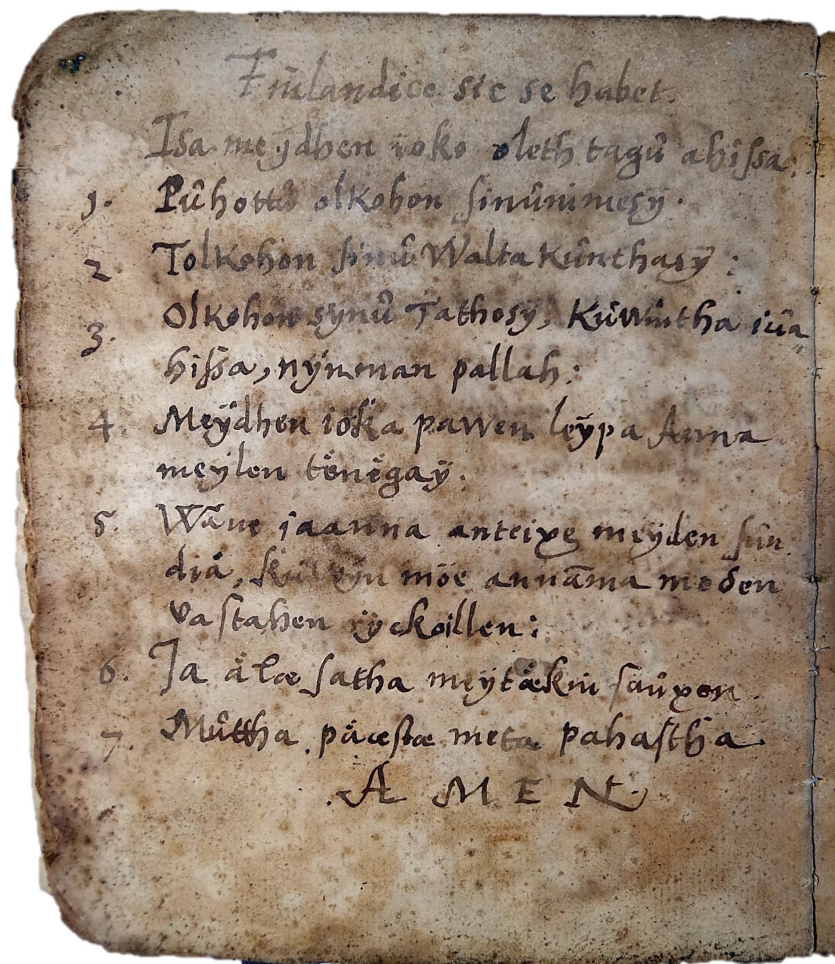 Finlandice sic se habet.
Isa meÿdhen ioko oleth tagű ahißa:
1. Pűhottű olkohon sinűnimesÿ.
2 Tolkohon sinű Walta kűnthasÿ:
3. Olkohon synű Tathosÿ, Kűwintha iűa
hißa, nÿn man pallah:
4. Meÿdhen iöka pawen leÿpa Anna
meylen tënëgaÿ:
5. Wäue jaanna anteixe meÿden sűn
diä, möe annäma meden
vastahen ÿckoillen:
6. Ja äläe satha meÿtäkin saűxon
7. Műttha päæstæ meta pahastha
AMEN